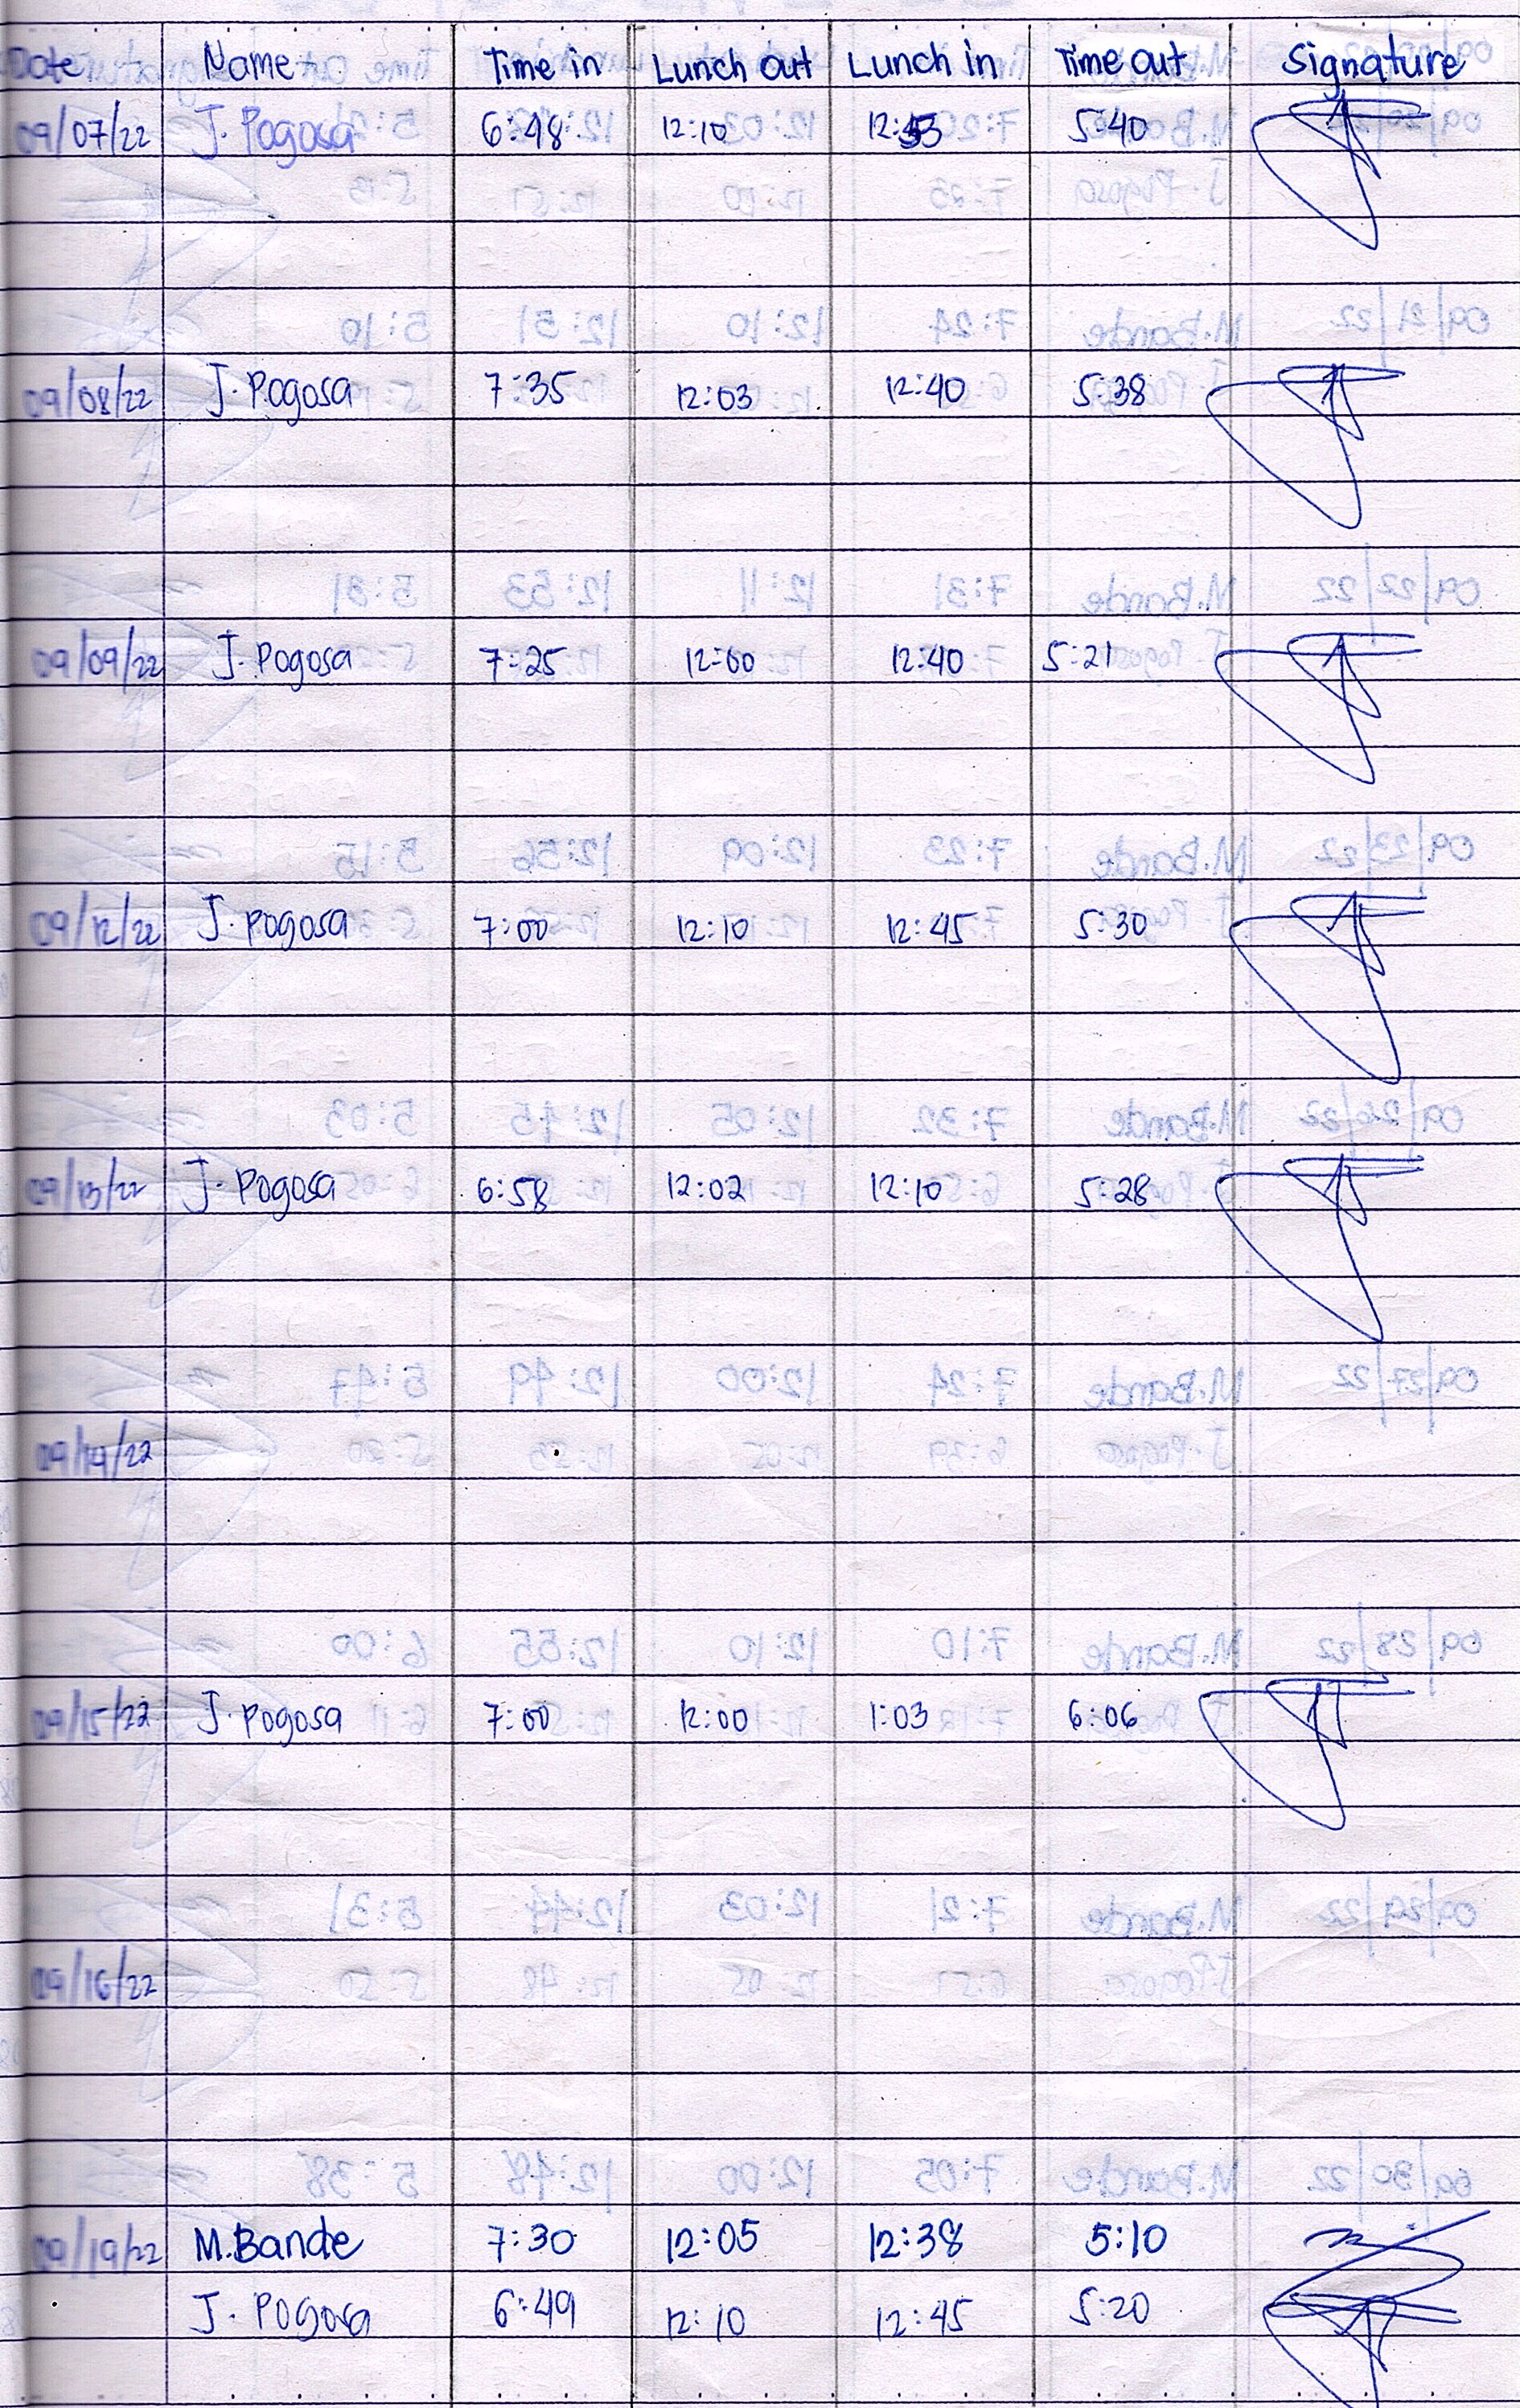 Date Name Time in Lunch out Lunch in Time out Signature
09/07/22 J. Pogosa 6:48 12:10 12:55 5:40
09/08/22 J. Pogosa 7:35 12:03 12:40 5:38
09/09/22 J. Pogosa 7:25 12:00 12:40 5:21
09/12/22 J. Pogosa 7:00 12:10 12:45 5:30
09/13/22 J. Pogosa 6:58 12:02 12:10 5:28
09/14/22
09/15/22 J. Pogosa 7:00 12:00 1:03 6:06
09/16/22
09/19/22 M.Bande 7:30 12:05 12:38 5:10
J. Pogosa 6:49 12:10 12:45 5:20